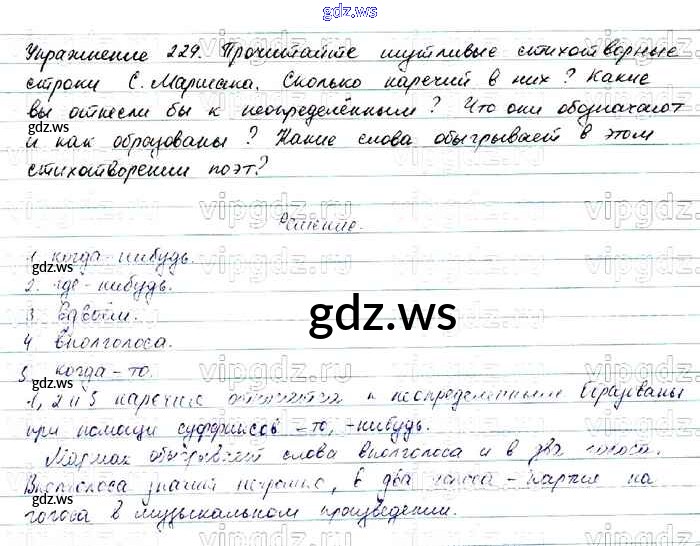 gdz.ws
Упражнение 229. Прочитайте шутливые стихотворные
строки С. Маршака. Сколько наречий в них? Какие
вы отнесли бы к неопределённым? Что они обозначают
и как образованы? Какие слова обыгрывает в этом
стихотворении поэт?
Решение.
1. когда-нибудь.
2. где-нибудь.
3. вдвоём.
4 вполголоса.
5. когда-то.
1, 2 и 5 наречие относится к неопределенным. Образованы
при помощи суффиксов -то, -нибудь.
Маршак обыгрывает слова вполголоса и в два голоса.
Вполголоса значит негромко, в два голоса - партия на
голоса в музыкальном произведении.
gdz.ws
gdz.ws
gdz.ws
gdz.ws
gdz.ws
vipgdz.ws